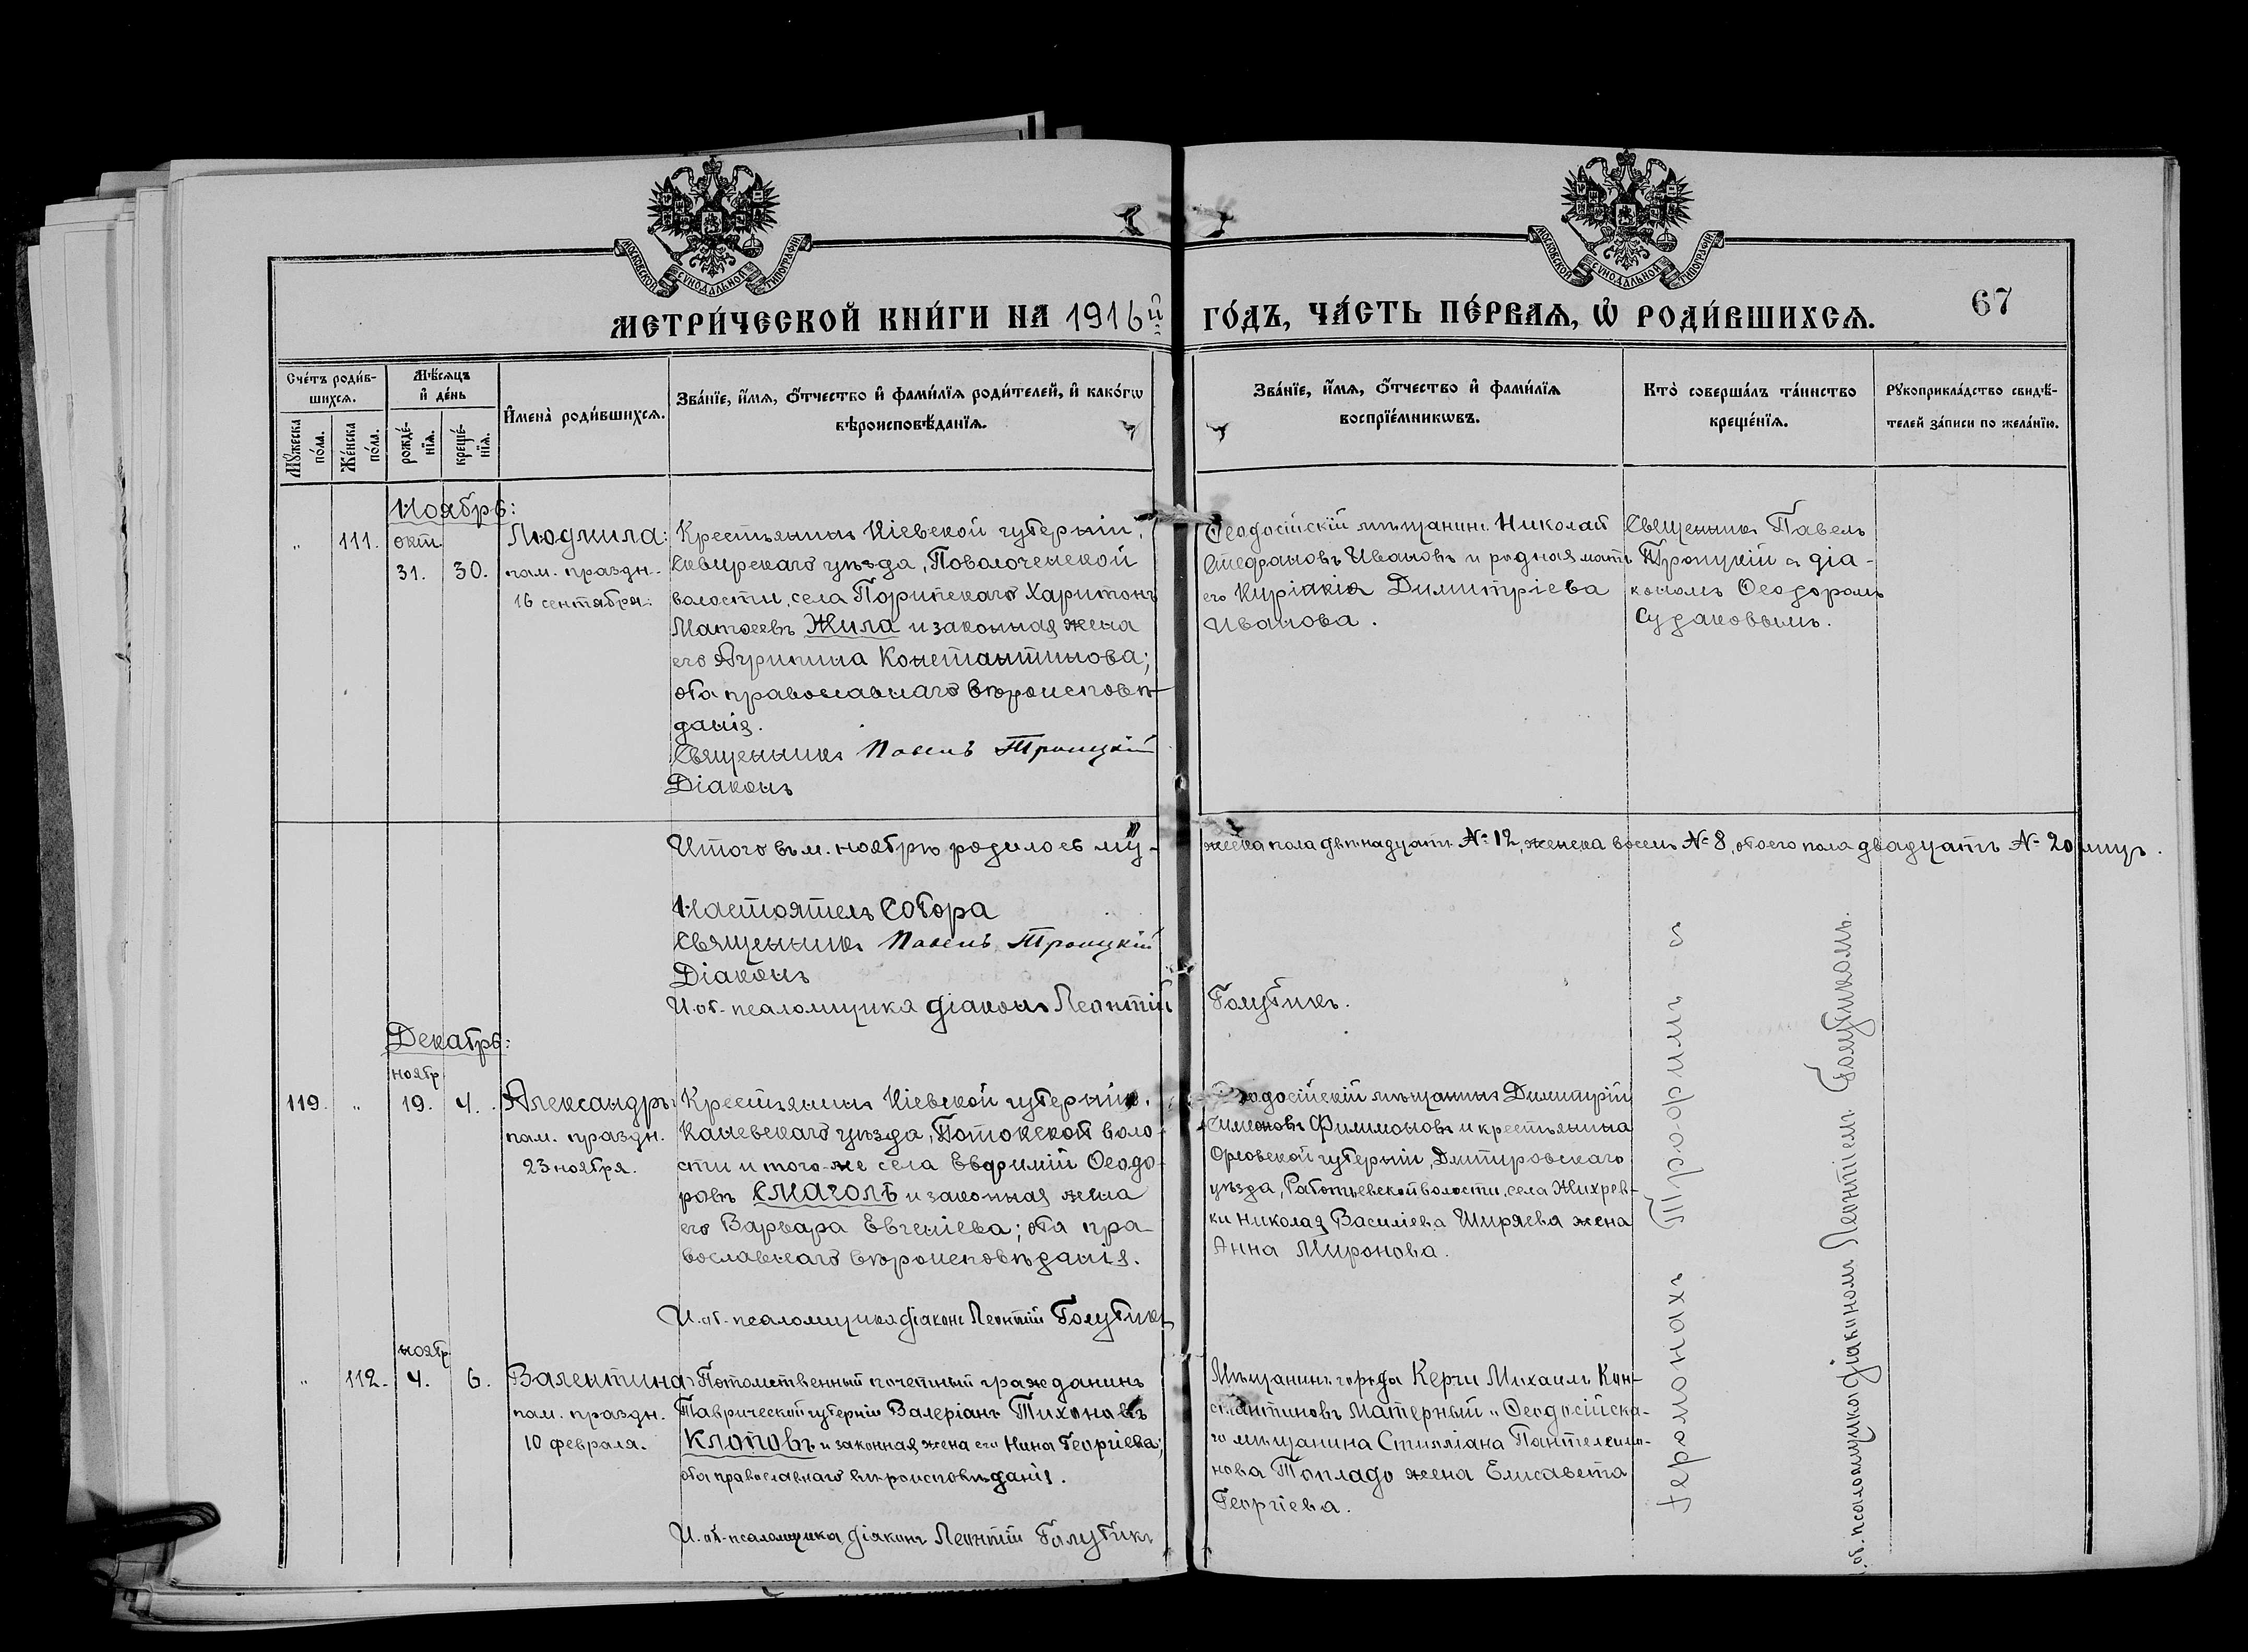 МОСКОВСКОЙ СѴНОДАЛЬНОЙ ТИПОГРАФІИ
МОСКОВСКОЙ СѴНОДАЛЬНОЙ ТИПОГРАФІИ
МЕТРИ́ЧЕСКОЙ КНИ́ГИ НА 1916й
ГО́ДЪ, ЧА́СТЬ ПЕ́РВАѦ, Ѽ РОДИ́ВШИХСѦ.
67
Сче́тъ роди́в-
шихся.
Мꙋ́жеска по́ла.
Же́нска по́ла.
Мѣ́сяцъ и҆ де́нь
рожде́-нїя.
креще́-нїя.
И҆мена̀ роди́вшихся.
Зва́нїе, и҆́мя, ѻ҆́тчество и҆ фами́лїя роди́телей, и҆ како́гѡ
вѣроисповѣ́данїя.
Зва́нїе, и҆́мя, ѻ҆́тчество и҆ фами́лїя
воспрїе́мникѡвъ.
Кто̀ соверша́лъ та́инство
креще́нїя.
Рꙋкоприкла́дство свидѣ́-
телей за́писи по жела́нїю.
Ноябрь:
„ 111. окт. 31. 30.
Людмила:
пам. праздн.
16 сентября.
Крестьянинъ Кіевской губерніи,
Сквирскаго уѣзда, Поволоченской
волости, села Парипскаго Харитонъ
Матѳеевъ Жила и законная жена
его Агрипина Константинова;
оба православнаго вѣроисповѣ-
данія.
Священникъ Павелъ Троицкій
Діаконъ
Ѳеодосійскій мѣщанинъ Николай
Стефановъ Ивановъ и родная мать
его Киріакія Димитріева
Иванова.
Священникъ Павелъ
Троицкій съ діа-
кономъ Ѳеодоромъ
Судаковымъ.
Итого въ м. ноябрѣ родилось му-
жеска пола двѣнадцать № 12, женска восемь № 8, обоего пола двадцать № 20 лицъ.
Настоятель Собора
Священникъ Павелъ Троицкій
Діаконъ
И. об. псаломщика діаконъ Леонтій
Голубикъ.
Декабрь:
119. „ ноябр. 19. 4.
Александръ:
пам. праздн.
23 ноября.
Крестьянинъ Кіевской губерніи,
Каневскаго уѣзда, Потокской воло-
сти и того-же села Евфимій Ѳеодо-
ровъ Смаголь и законная жена
его Варвара Евгеніева; оба пра-
вославнаго вѣроисповѣданія.
И. об. псаломщика діаконъ Леонтій Голубикъ
Ѳеодосійскій мѣщанинъ Димитрій
Симеоновъ Филимоновъ и крестьянина
Орловской губерніи, Дмитровскаго
уѣзда, Работьевской волости, села Жихрев-
ки Николая Василіева Ширяева жена
Анна Миронова.
„ 112. ноябр. 4. 6.
Валентина:
пам. праздн.
10 февраля.
Потомственный почетный гражданинъ
Таврической губерніи Валеріанъ Тихоновъ
Клоповъ и законная жена его Нина Георгіева;
оба православнаго вѣроисповѣданія.
И. об. псаломщика діаконъ Леонтій Голубикъ
Мѣщанинъ города Керчи Михаилъ Кон-
стантиновъ Матерный и Ѳеодосійска-
го мѣщанина Стилліана Пантелеимо-
нова Топладо жена Елисавета
Георгіева.
Іеромонахъ Трофимъ съ
об. псаломщика діакономъ Леонтіемъ Голубикомъ.